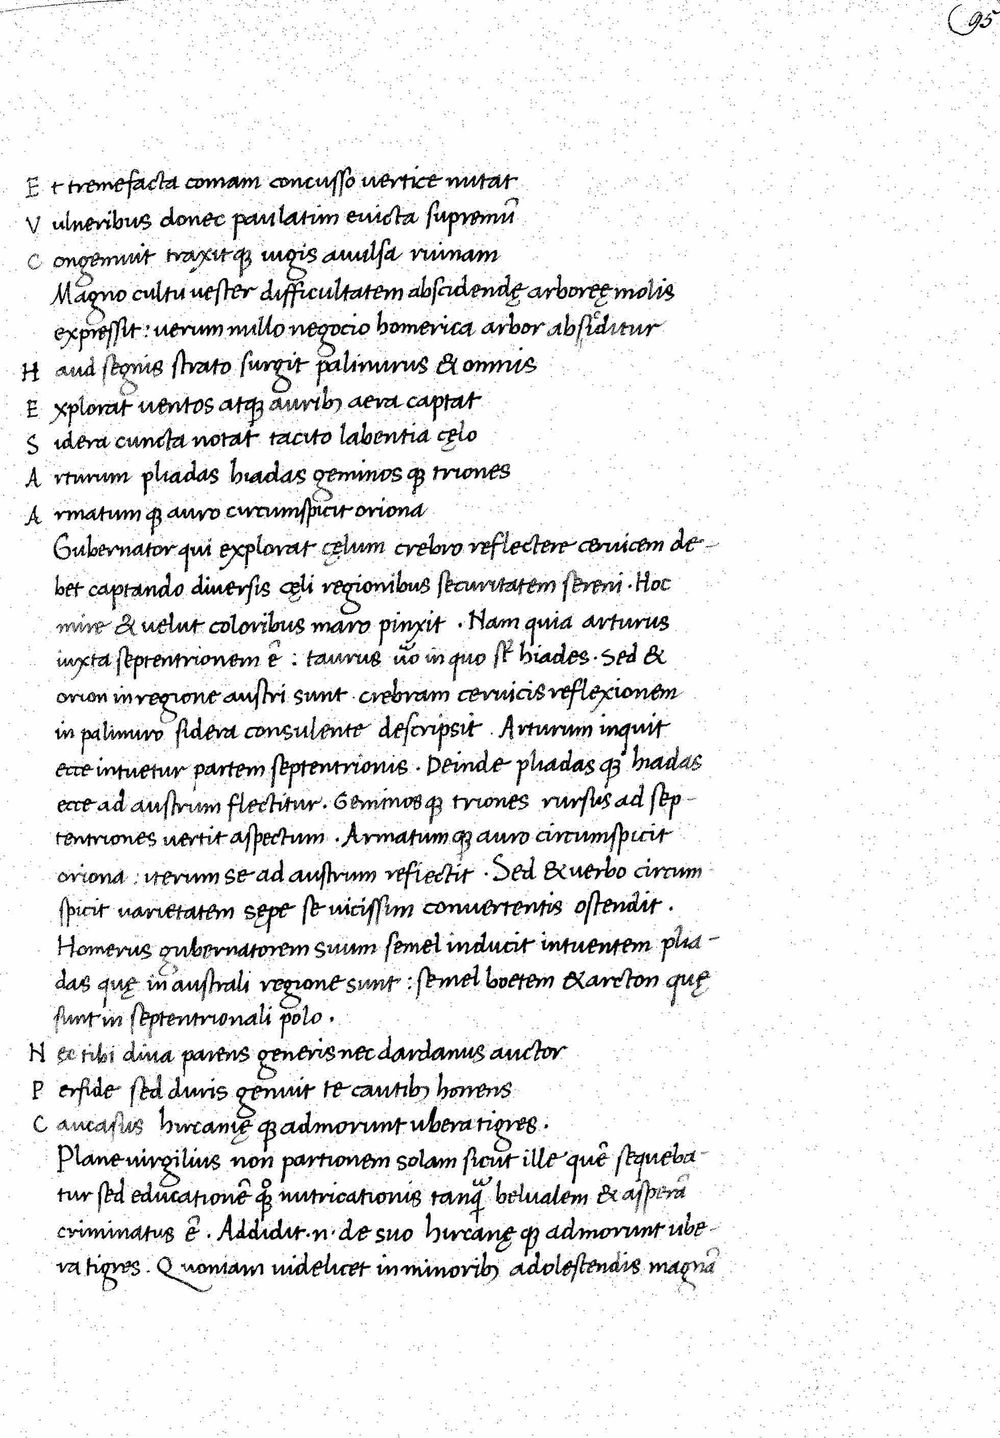 95
E t tremefacta comam concusso uertice nutat
V ulneribus donec paulatim euicta supremū
C ongemuit traxitq; iugis auulsa ruinam
Magno cultu uester difficultatem abscidendę arboreę molis
expressit : uerum nullo negocio homerica arbor absciditur
H aud segnis strato surgit palinurus & omnis
E xplorat uentos atq; aurib; aera captat
S idera cuncta notat tacito labentia cęlo
A rturum pliadas hiadas geminosq; triones
A rmatumq; auro circumspicit oriona
Gubernator qui explorat cęlum crebro reflectere ceruicem de-
bet captando diuersis cęli regionibus securitatem sereni . Hoc
mire & uelut coloribus maro pinxit . Nam quia arturus
iuxta septentrionem ē : taurus uo in quo st hiades . Sed &
orion in regione austri sunt . crebram ceruicis reflexionem
in palinuro sidera consulente descripsit . Arturum inquit
ecce intuetur partem septentrionis . Deinde pliadasq; hiadas
ecce ad austrum flectitur . Geminosq; triones rursus ad sep-
tentriones vertit aspectum . Armatumq; auro circumspicit
oriona : iterum se ad austrum reflectit . Sed & uerbo circum
spicit varietatem sępe se uicissim conuertentis ostendit .
Homerus gubernatorem suum semel inducit intuentem plia-
das quę in australi regione sunt : semel boetem & arcton quę
sunt in septentrionali polo .
N ec tibi diua parens generis nec dardanus auctor
P erfide sed duris genuit te cautib; horrens
C aucasus hircanię q; admorunt ubera tigres .
Plane uirgilius non partionem solam sicut ille quē sequeba-
tur sed educationē q; nutricationis tanq belualem & asperā
criminatus ē . Addidit .n. de suo hircanęq; admorunt ube-
ra tigres . Quoniam uidelicet in minorib; adolescendis magnā